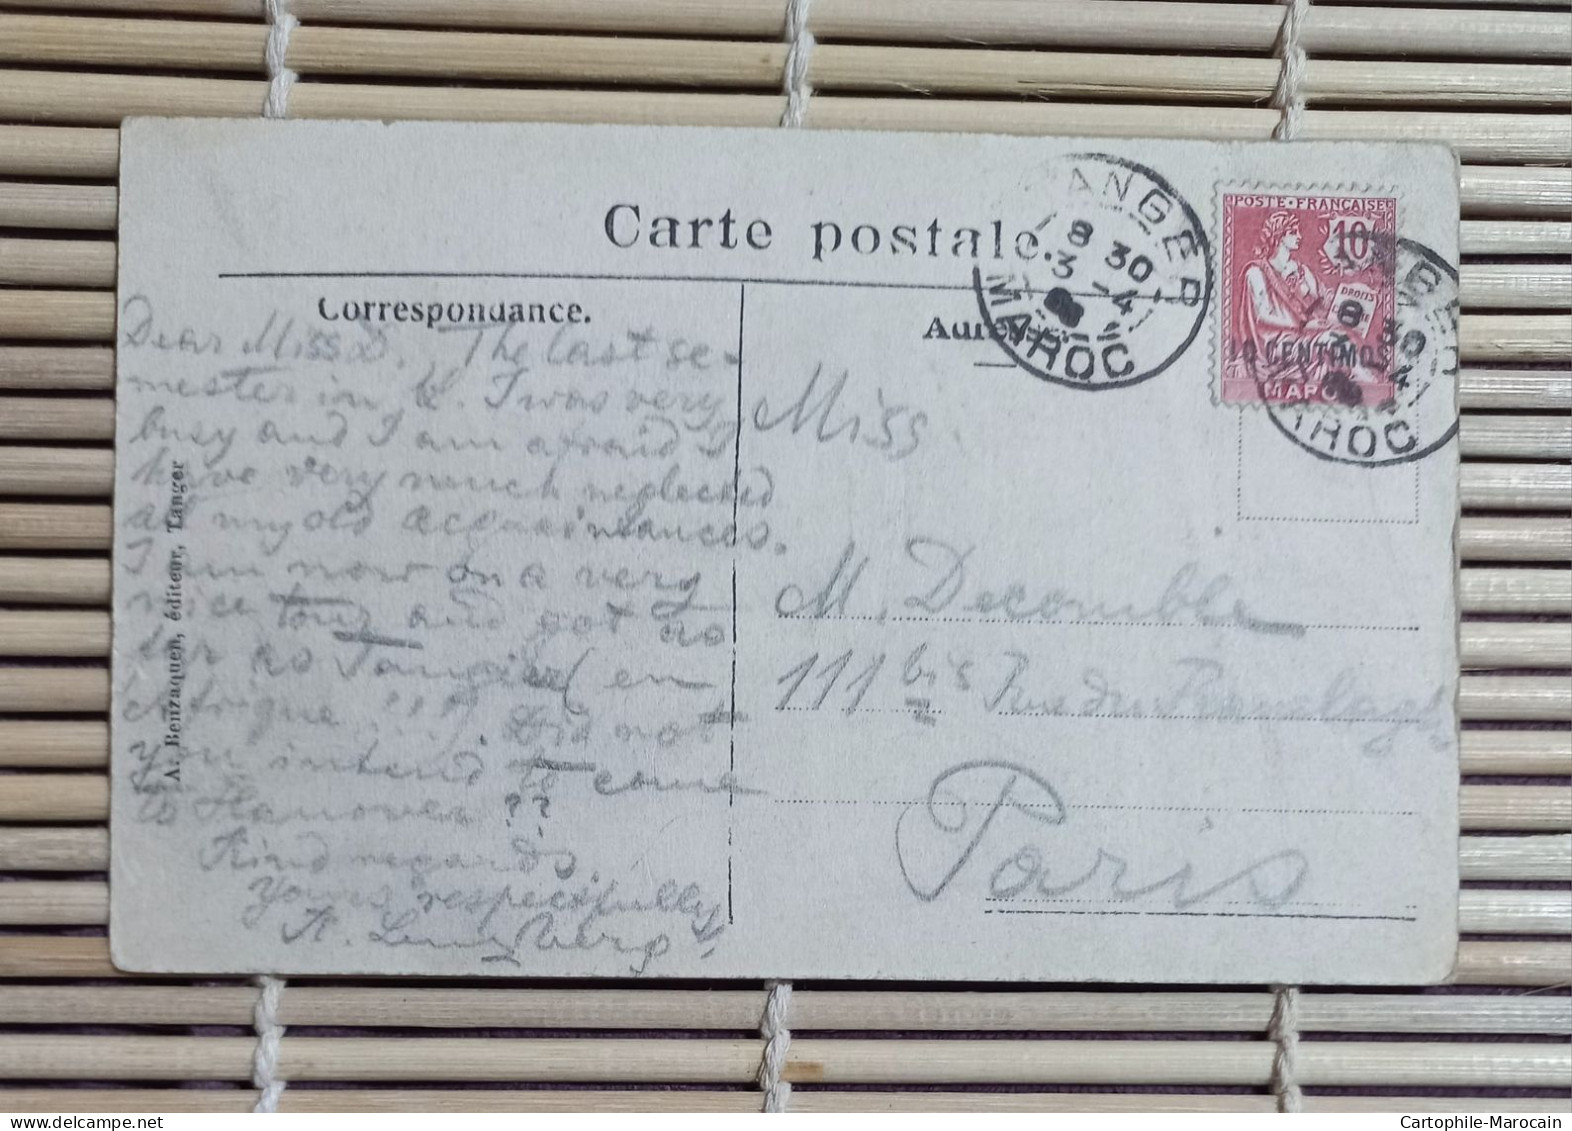 Carte postale.
Correspondance.
Adresse
TANGER
8 30
3 - 4
MAROC
POSTE·FRANÇAISE
10
DROITS
10 CENTIMOS
MAROC
TANGER
8 30
MAROC
Dear Miss D. The last se-
mester in H. I was very
busy and I am afraid I
have very much neglected
all my old acquaintances.
I am now on a very
nice tour and got so
far as Tangier (en
Afrique !!!). Did not
you intend to come
to Hanover ??
Kind regards.
Yours respectfully
A.
A. Benzaquen, éditeur, Tanger
Miss
M. Decomble
111 bis Rue du
Paris
Cartophile-Marocain